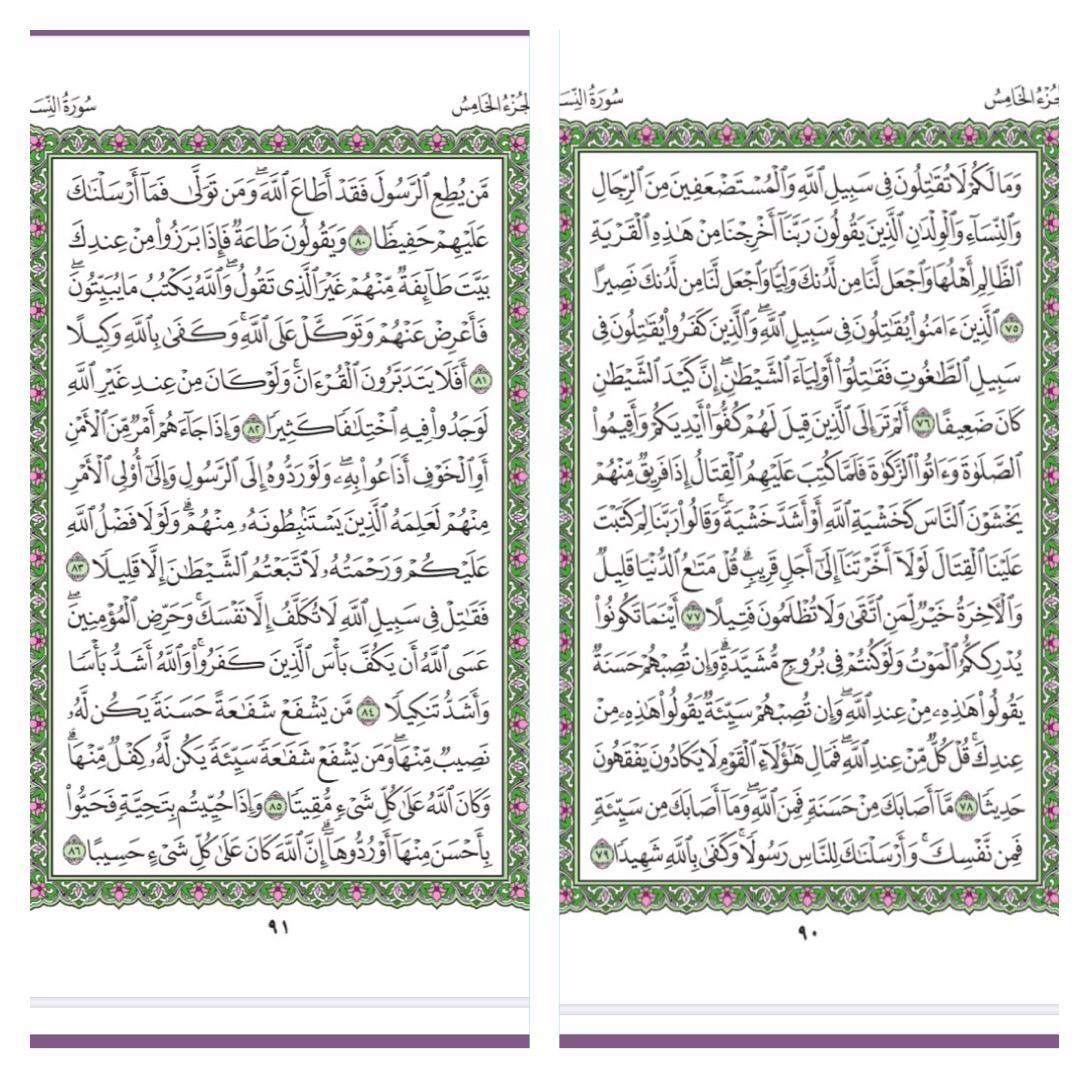 الجُزْءُ الخَامِسُ
سُورَةُ النِّسَ
وَمَا لَكُمْ لَا تُقَٰتِلُونَ فِى سَبِيلِ ٱللَّهِ وَٱلْمُسْتَضْعَفِينَ مِنَ ٱلرِّجَالِ
وَٱلنِّسَآءِ وَٱلْوِلْدَٰنِ ٱلَّذِينَ يَقُولُونَ رَبَّنَآ أَخْرِجْنَا مِنْ هَٰذِهِ ٱلْقَرْيَةِ
ٱلظَّالِمِ أَهْلُهَا وَٱجْعَل لَّنَا مِن لَّدُنكَ وَلِيًّا وَٱجْعَل لَّنَا مِن لَّدُنكَ نَصِيرًا
٧٥ ٱلَّذِينَ ءَامَنُوا۟ يُقَٰتِلُونَ فِى سَبِيلِ ٱللَّهِ ۖ وَٱلَّذِينَ كَفَرُوا۟ يُقَٰتِلُونَ فِى
سَبِيلِ ٱلطَّٰغُوتِ فَقَٰتِلُوٓا۟ أَوْلِيَآءَ ٱلشَّيْطَٰنِ ۖ إِنَّ كَيْدَ ٱلشَّيْطَٰنِ
كَانَ ضَعِيفًا ٧٦ أَلَمْ تَرَ إِلَى ٱلَّذِينَ قِيلَ لَهُمْ كُفُّوٓا۟ أَيْدِيَكُمْ وَأَقِيمُوا۟
ٱلصَّلَوٰةَ وَءَاتُوا۟ ٱلزَّكَوٰةَ فَلَمَّا كُتِبَ عَلَيْهِمُ ٱلْقِتَالُ إِذَا فَرِيقٌ مِّنْهُمْ
يَخْشَوْنَ ٱلنَّاسَ كَخَشْيَةِ ٱللَّهِ أَوْ أَشَدَّ خَشْيَةً ۚ وَقَالُوا۟ رَبَّنَا لِمَ كَتَبْتَ
عَلَيْنَا ٱلْقِتَالَ لَوْلَآ أَخَّرْتَنَآ إِلَىٰٓ أَجَلٍ قَرِيبٍ ۗ قُلْ مَتَٰعُ ٱلدُّنْيَا قَلِيلٌ
وَٱلْءَاخِرَةُ خَيْرٌ لِّمَنِ ٱتَّقَىٰ وَلَا تُظْلَمُونَ فَتِيلًا ٧٧ أَيْنَمَا تَكُونُوا۟
يُدْرِككُّمُ ٱلْمَوْتُ وَلَوْ كُنتُمْ فِى بُرُوجٍ مُّشَيَّدَةٍ ۗ وَإِن تُصِبْهُمْ حَسَنَةٌ
يَقُولُوا۟ هَٰذِهِۦ مِنْ عِندِ ٱللَّهِ ۖ وَإِن تُصِبْهُمْ سَيِّئَةٌ يَقُولُوا۟ هَٰذِهِۦ مِنْ
عِندِكَ ۚ قُلْ كُلٌّ مِّنْ عِندِ ٱللَّهِ ۖ فَمَالِ هَٰٓؤُلَآءِ ٱلْقَوْمِ لَا يَكَادُونَ يَفْقَهُونَ
حَدِيثًا ٧٨ مَّآ أَصَابَكَ مِنْ حَسَنَةٍ فَمِنَ ٱللَّهِ ۖ وَمَآ أَصَابَكَ مِن سَيِّئَةٍ
فَمِن نَّفْسِكَ ۚ وَأَرْسَلْنَٰكَ لِلنَّاسِ رَسُولًا ۚ وَكَفَىٰ بِٱللَّهِ شَهِيدًا ٧٩
٩٠
الجُزْءُ الخَامِسُ
سُورَةُ النِّسَ
مَّن يُطِعِ ٱلرَّسُولَ فَقَدْ أَطَاعَ ٱللَّهَ ۖ وَمَن تَوَلَّىٰ فَمَآ أَرْسَلْنَٰكَ
عَلَيْهِمْ حَفِيظًا ٨٠ وَيَقُولُونَ طَاعَةٌ فَإِذَا بَرَزُوا۟ مِنْ عِندِكَ
بَيَّتَ طَآئِفَةٌ مِّنْهُمْ غَيْرَ ٱلَّذِى تَقُولُ ۖ وَٱللَّهُ يَكْتُبُ مَا يُبَيِّتُونَ ۖ
فَأَعْرِضْ عَنْهُمْ وَتَوَكَّلْ عَلَى ٱللَّهِ ۚ وَكَفَىٰ بِٱللَّهِ وَكِيلًا
٨١ أَفَلَا يَتَدَبَّرُونَ ٱلْقُرْءَانَ ۚ وَلَوْ كَانَ مِنْ عِندِ غَيْرِ ٱللَّهِ
لَوَجَدُوا۟ فِيهِ ٱخْتِلَٰفًا كَثِيرًا ٨٢ وَإِذَا جَآءَهُمْ أَمْرٌ مِّنَ ٱلْأَمْنِ
أَوِ ٱلْخَوْفِ أَذَاعُوا۟ بِهِۦ ۖ وَلَوْ رَدُّوهُ إِلَى ٱلرَّسُولِ وَإِلَىٰٓ أُو۟لِى ٱلْأَمْرِ
مِنْهُمْ لَعَلِمَهُ ٱلَّذِينَ يَسْتَنۢبِطُونَهُۥ مِنْهُمْ ۗ وَلَوْلَا فَضْلُ ٱللَّهِ
عَلَيْكُمْ وَرَحْمَتُهُۥ لَٱتَّبَعْتُمُ ٱلشَّيْطَٰنَ إِلَّا قَلِيلًا ٨٣
فَقَٰتِلْ فِى سَبِيلِ ٱللَّهِ لَا تُكَلَّفُ إِلَّا نَفْسَكَ ۚ وَحَرِّضِ ٱلْمُؤْمِنِينَ ۖ
عَسَى ٱللَّهُ أَن يَكُفَّ بَأْسَ ٱلَّذِينَ كَفَرُوا۟ ۚ وَٱللَّهُ أَشَدُّ بَأْسًا
وَأَشَدُّ تَنكِيلًا ٨٤ مَّن يَشْفَعْ شَفَٰعَةً حَسَنَةً يَكُن لَّهُۥ
نَصِيبٌ مِّنْهَا ۖ وَمَن يَشْفَعْ شَفَٰعَةً سَيِّئَةً يَكُن لَّهُۥ كِفْلٌ مِّنْهَا ۗ
وَكَانَ ٱللَّهُ عَلَىٰ كُلِّ شَىْءٍ مُّقِيتًا ٨٥ وَإِذَا حُيِّيتُم بِتَحِيَّةٍ فَحَيُّوا۟
بِأَحْسَنَ مِنْهَآ أَوْ رُدُّوهَآ ۗ إِنَّ ٱللَّهَ كَانَ عَلَىٰ كُلِّ شَىْءٍ حَسِيبًا ٨٦
٩١